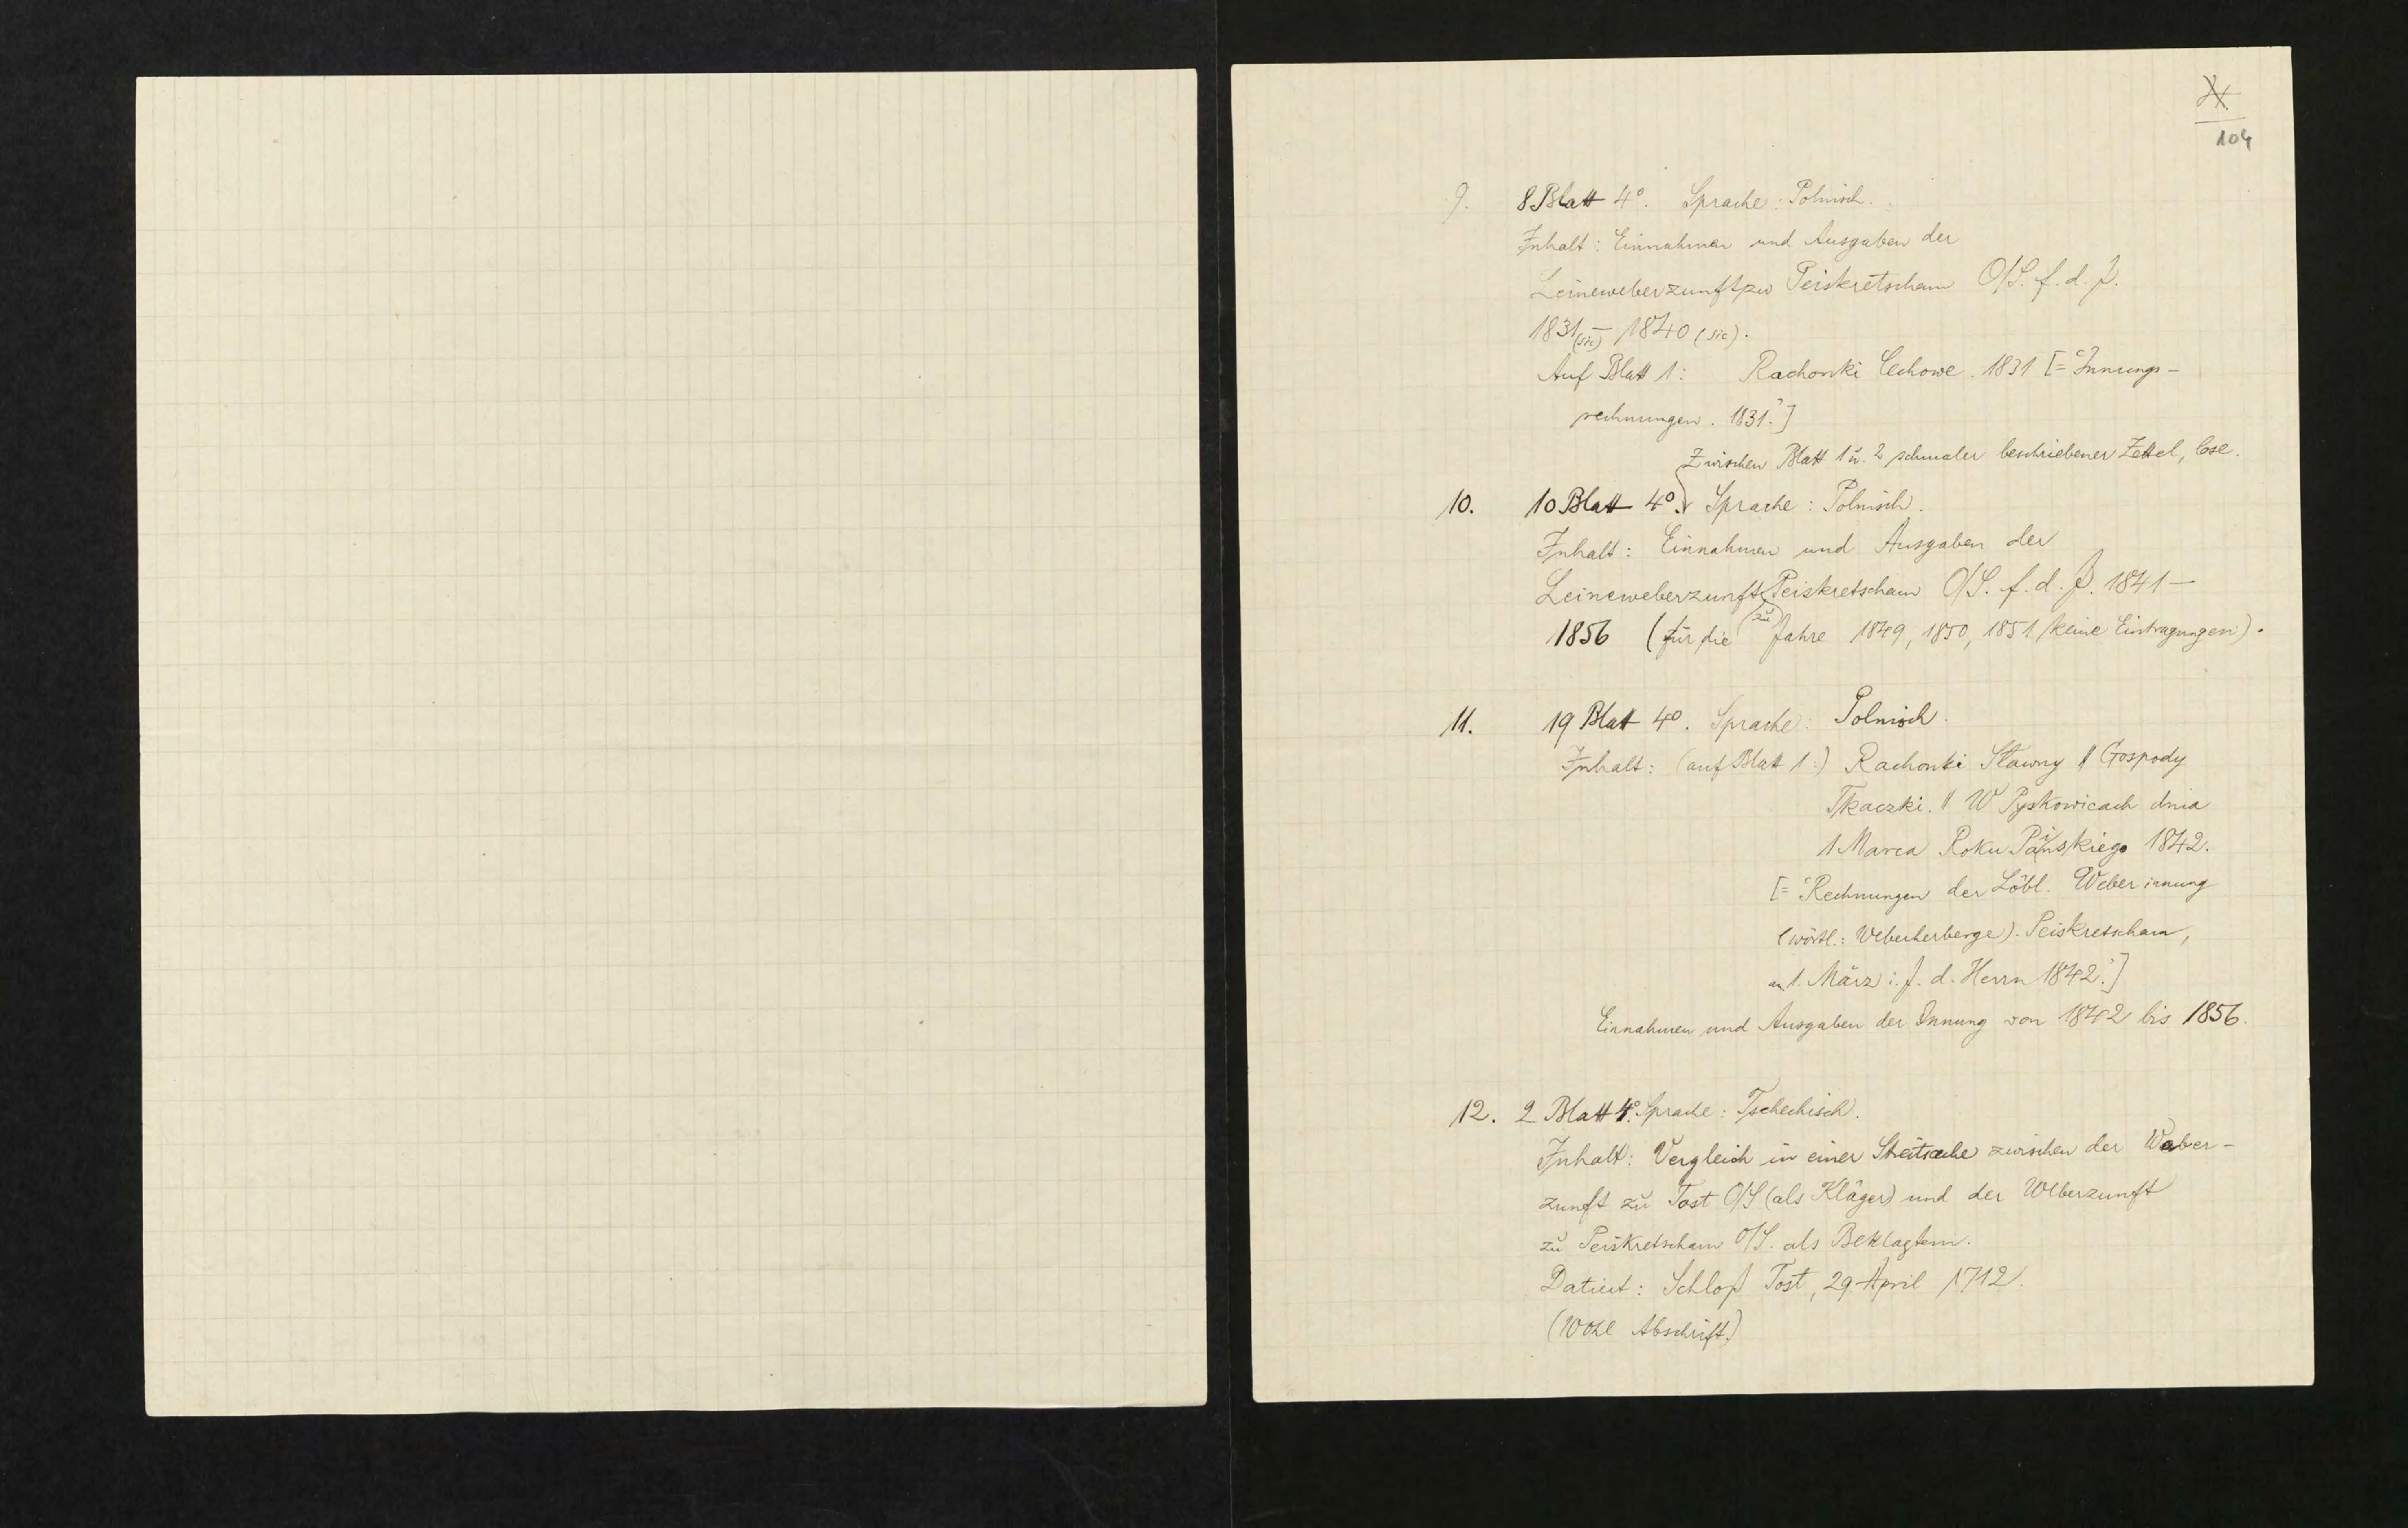 104
9. 8 Blatt 4°. Sprache: Polnisch.
Inhalt: Einnahmen und Ausgaben der
Leineweberzunft zu Peiskretscham O/S. f. d. J.
1831 (sic) – 1840 (sic).
Auf Blatt 1: Rachonki Cechowe. 1831 [= "Innungs-
rechnungen. 1831."]
Zwischen Blatt 1 u. 2 schmaler beschriebener Zettel, lose.
10. 10 Blatt 4°. Sprache: Polnisch.
Inhalt: Einnahmen und Ausgaben der
Leineweberzunft zu Peiskretscham O/S. f. d. J. 1841 –
1856 (für die Jahre 1849, 1850, 1851 keine Eintragungen).
11. 19 Blatt 4°. Sprache: Polnisch.
Inhalt: (auf Blatt 1:) Rachonki Sławny || Gospody
Tkaczki. || W Pyskowicach dnia
1 Marca Roku Pańskiego 1842.
[= "Rechnungen der Löbl. Weberinnung
(wörtl.: Weberherberge). Peiskretscham,
am 1. März i. J. d. Herrn 1842."]
Einnahmen und Ausgaben der Innung von 1842 bis 1856.
12. 2 Blatt 4°. Sprache: Tschechisch.
Inhalt: Vergleich in einer Streitsache zwischen der Weber-
zunft zu Tost O/S (als Kläger) und der Weberzunft
zu Peiskretscham O/S. als Beklagtem.
Datiert: Schloß Tost, 29. April 1712.
(Wohl Abschrift.)